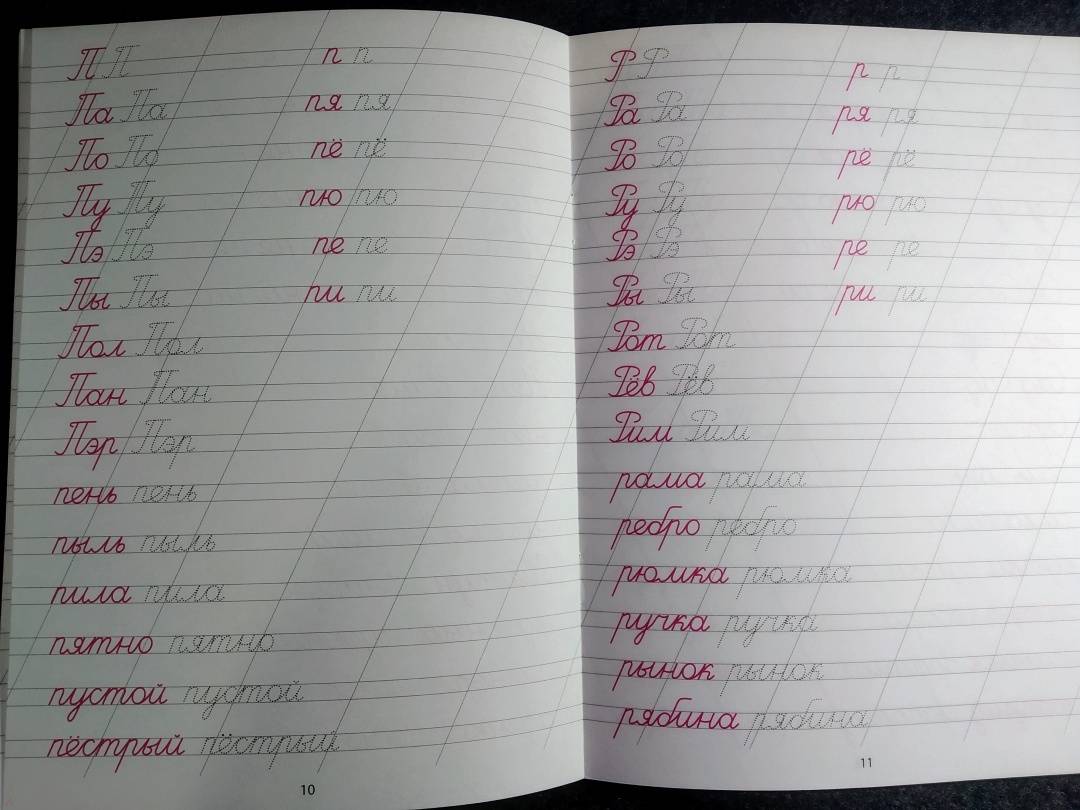 П П п п
Па Па пя пя
По По пё пё
Пу Пу пю пю
Пэ Пэ пе пе
Пы Пы пи пи
Пол Пол
Пан Пан
Пэр Пэр
пень пень
пыль пыль
пила пила
пятно пятно
пустой пустой
пёстрый пёстрый
10
Р Р р р
Ра Ра ря ря
Ро Ро рё рё
Ру Ру рю рю
Рэ Рэ ре ре
Ры Ры ри ри
Рот Рот
Рёв Рёв
Рим Рим
рама рама
ребро ребро
рюмка рюмка
ручка ручка
рынок рынок
рябина рябина
11